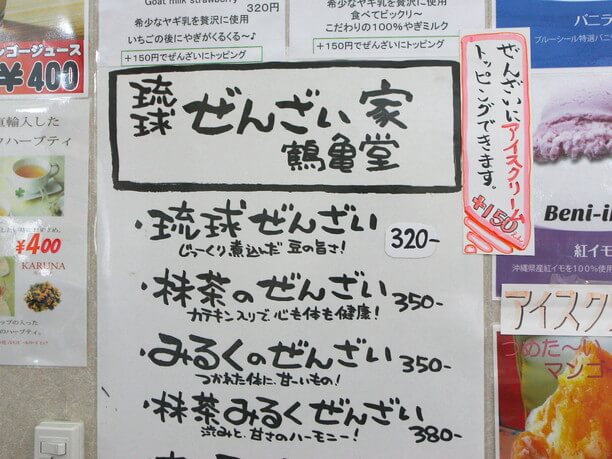 Goat milk strawberry
320円
希少なヤギ乳を贅沢に使用
いちごの後にやぎがくるくる〜♪
+150円でぜんざいにトッピング
希少なヤギ乳を贅沢に使用
食べてビックリー
こだわりの100%やぎミルク
+150円でぜんざいにトッピング
ンゴージュース
¥400
直輸入した
クハーブティ
¥400
KARUNA
ップの入った
のハーブティ。
琉球ぜんざい家
鶴亀堂
・琉球ぜんざい 320-
じっくり煮込んだ豆の旨さ!
・抹茶のぜんざい 350-
カテキン入りで心も体も健康!
・みるくのぜんざい 350-
つかれた体に甘ーいもの!
・抹茶みるくぜんざい 380-
渋みと甘さのハーモニー!
ぜんざいにアイスクリーム
トッピングできます。
+150
バニラ
ブルーシール特選バニ
Beni-i
紅イモ
沖縄県産紅イモを100%使用
アイスク
つめた〜い
マンゴ